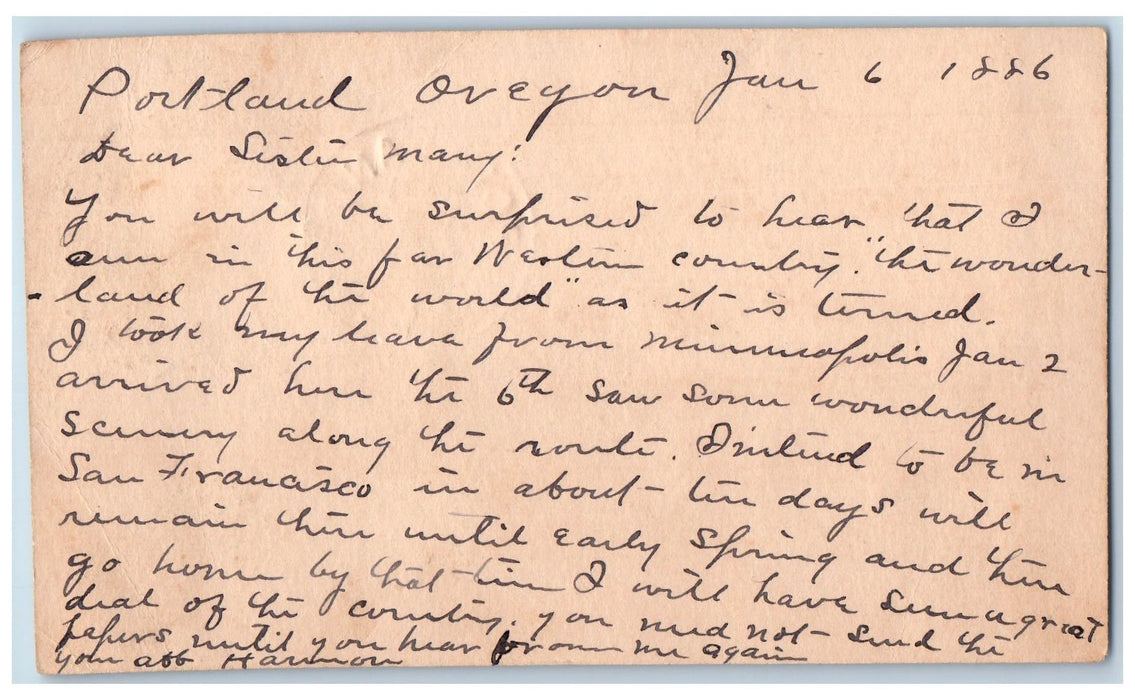 Portland Oregon Jan 6 1886
Dear Sister Mary:
You will be surprised to hear that I
am in this far Western country. "the wonder-
-land of the world" as it is termed.
I took my leave from Minneapolis Jan 2
arrived here the 6th saw some wonderful
scenery along the route. I intend to be in
San Francisco in about ten days will
remain there until early Spring and then
go home by that time I will have seen a great
deal of the country. you need not send the
papers until you hear from me again
your aff Harmon